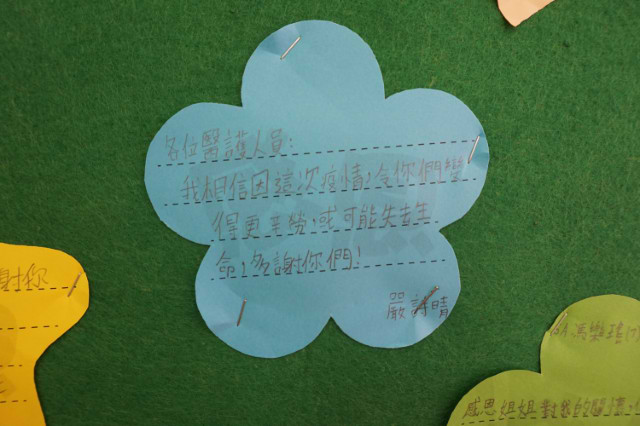 各位醫護人員：
我相信因這次疫情，令你們變
得更辛勞，或可能失去生
命，多謝你們！
嚴詩晴
謝你
感恩姐姐對我的關懷，